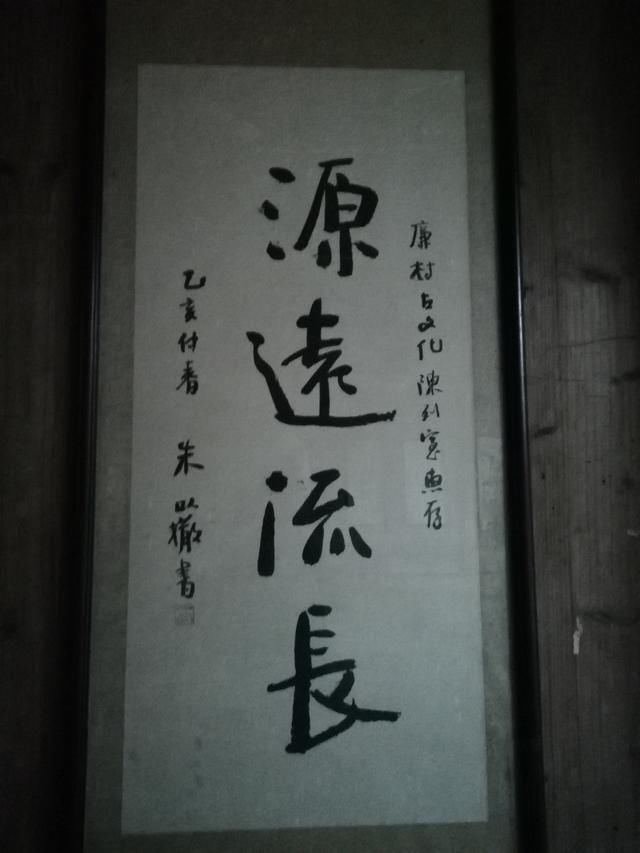 廉村古文化陳列室惠存
源遠流長
乙亥仲春 朱以撒書